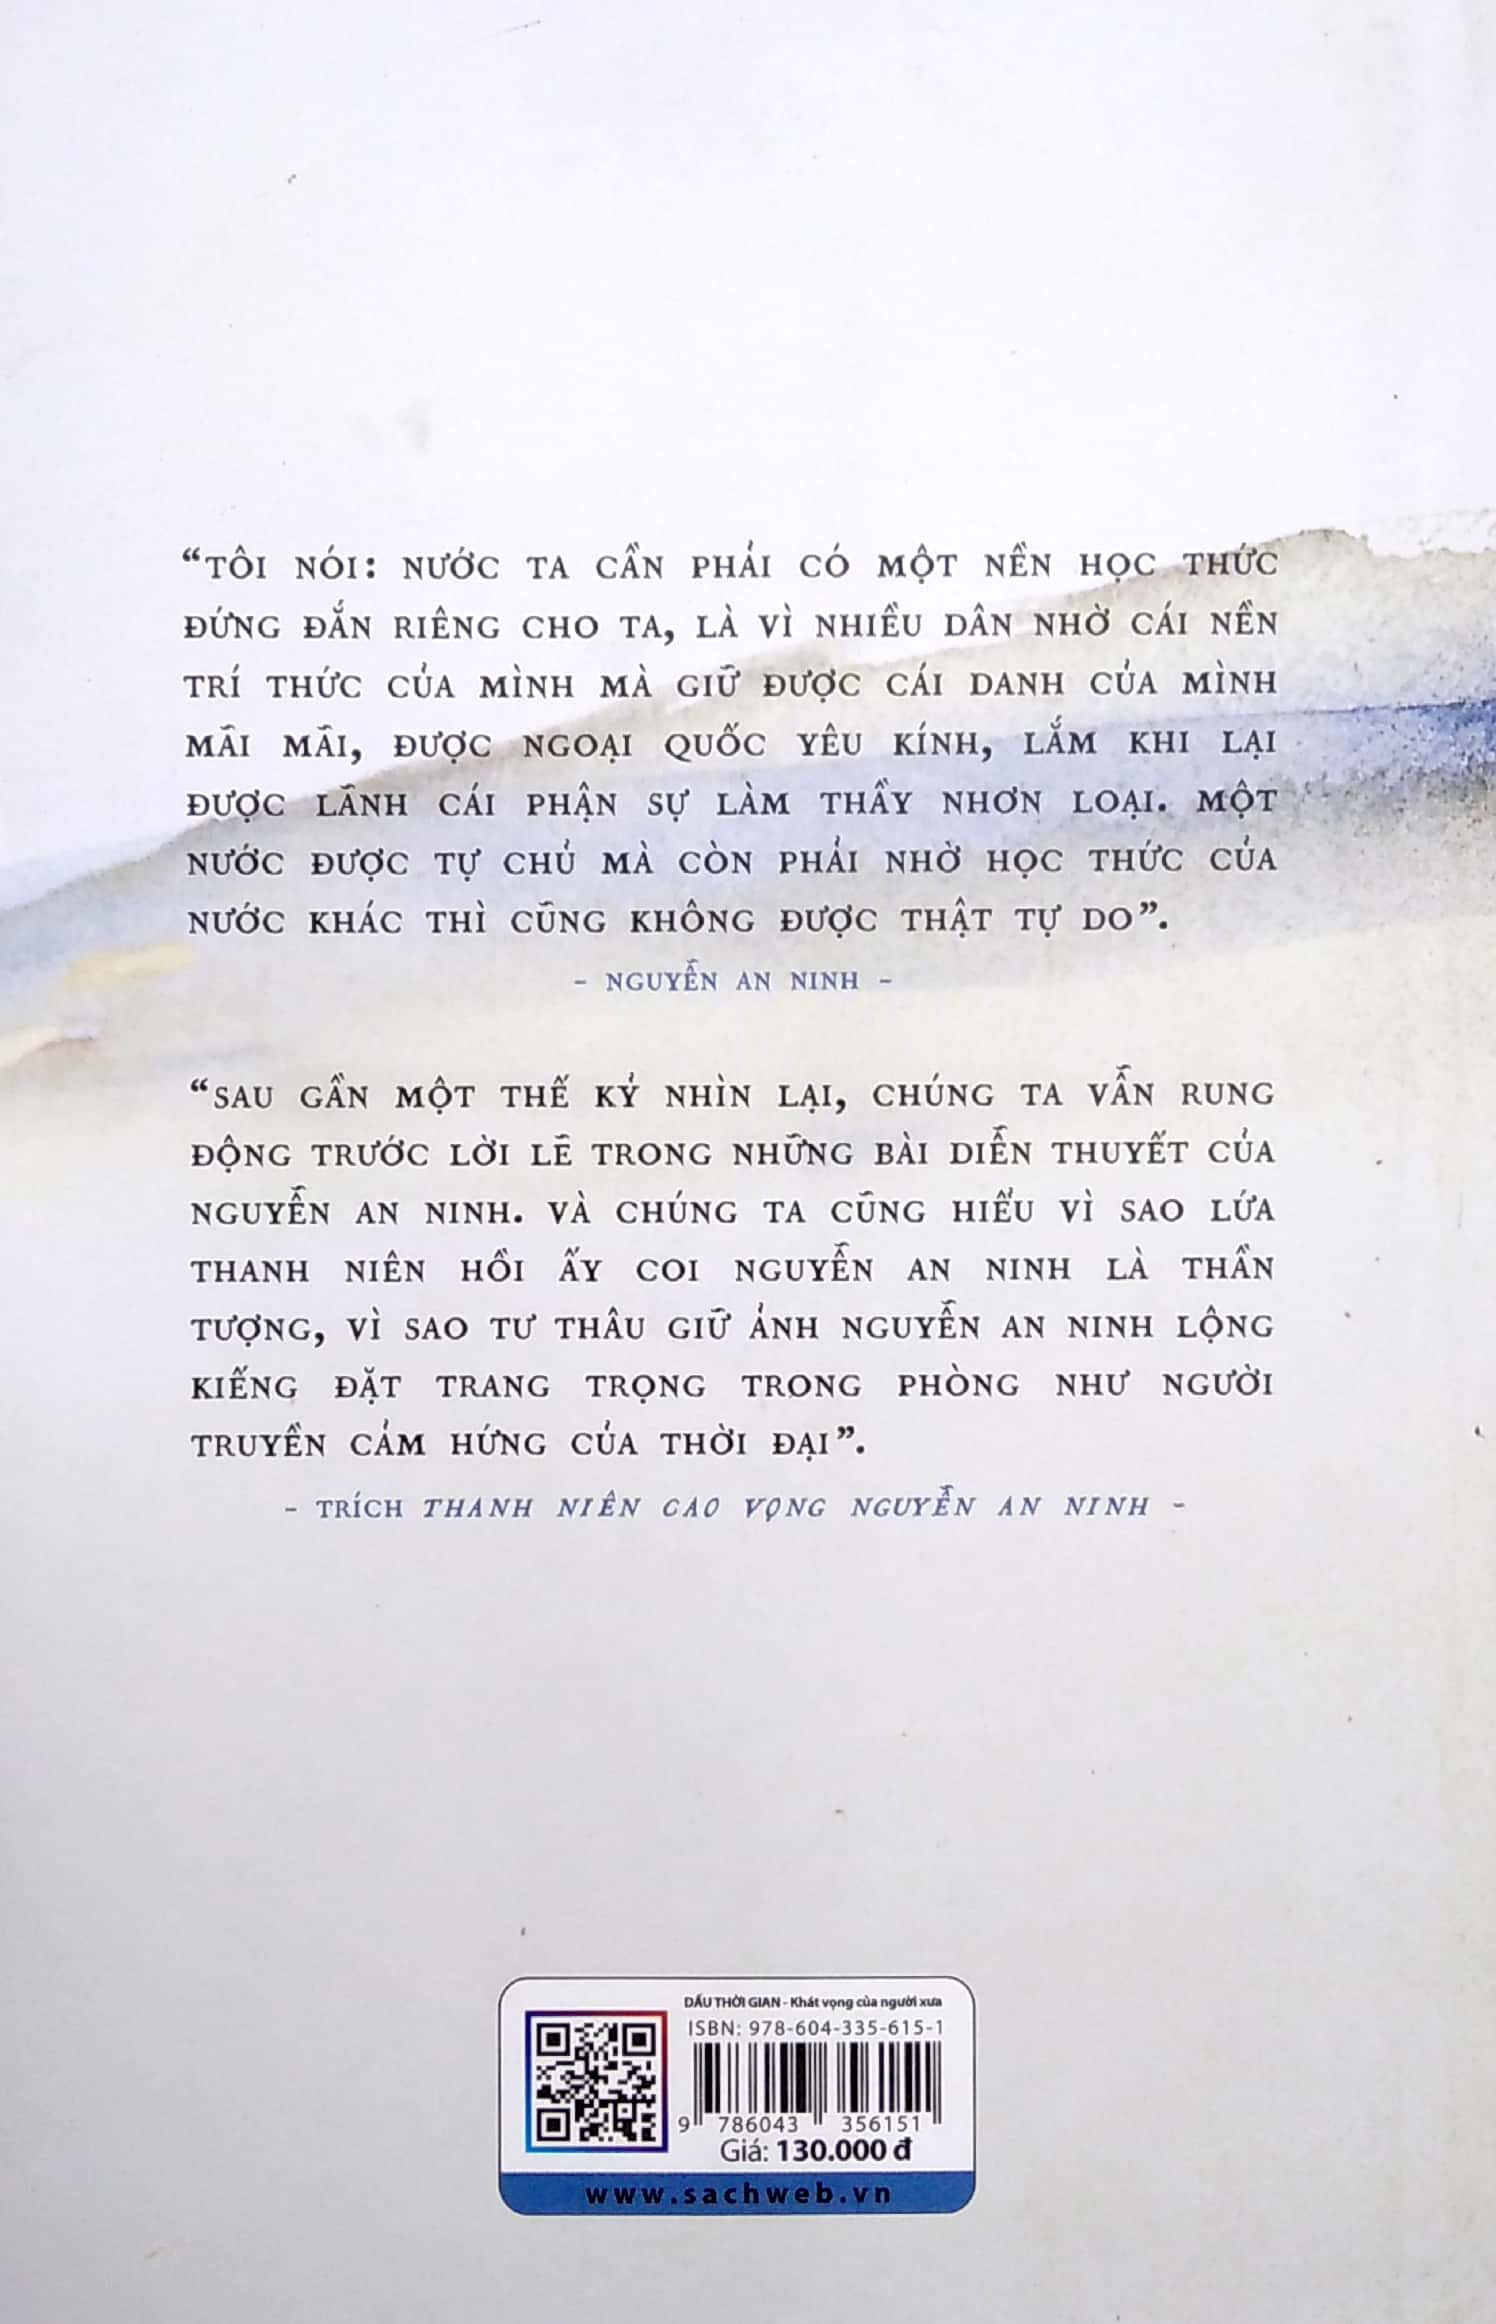 “TÔI NÓI: NƯỚC TA CẦN PHẢI CÓ MỘT NỀN HỌC THỨC
ĐỨNG ĐẮN RIÊNG CHO TA, LÀ VÌ NHIỀU DÂN NHỜ CÁI NỀN
TRÍ THỨC CỦA MÌNH MÀ GIỮ ĐƯỢC CÁI DANH CỦA MÌNH
MÃI MÃI, ĐƯỢC NGOẠI QUỐC YÊU KÍNH, LẮM KHI LẠI
ĐƯỢC LÃNH CÁI PHẬN SỰ LÀM THẦY NHƠN LOẠI. MỘT
NƯỚC ĐƯỢC TỰ CHỦ MÀ CÒN PHẢI NHỜ HỌC THỨC CỦA
NƯỚC KHÁC THÌ CŨNG KHÔNG ĐƯỢC THẬT TỰ DO”.
– NGUYỄN AN NINH –
“SAU GẦN MỘT THẾ KỶ NHÌN LẠI, CHÚNG TA VẪN RUNG
ĐỘNG TRƯỚC LỜI LẼ TRONG NHỮNG BÀI DIỄN THUYẾT CỦA
NGUYỄN AN NINH. VÀ CHÚNG TA CŨNG HIỂU VÌ SAO LỨA
THANH NIÊN HỒI ẤY COI NGUYỄN AN NINH LÀ THẦN
TƯỢNG, VÌ SAO TƯ THÂU GIỮ ẢNH NGUYỄN AN NINH LỘNG
KIẾNG ĐẶT TRANG TRỌNG TRONG PHÒNG NHƯ NGƯỜI
TRUYỀN CẢM HỨNG CỦA THỜI ĐẠI”.
– TRÍCH THANH NIÊN CAO VỌNG NGUYỄN AN NINH –
DẤU THỜI GIAN - Khát vọng của người xưa
ISBN: 978-604-335-615-1
9 786043 356151
Giá: 130.000 đ
www.sachweb.vn